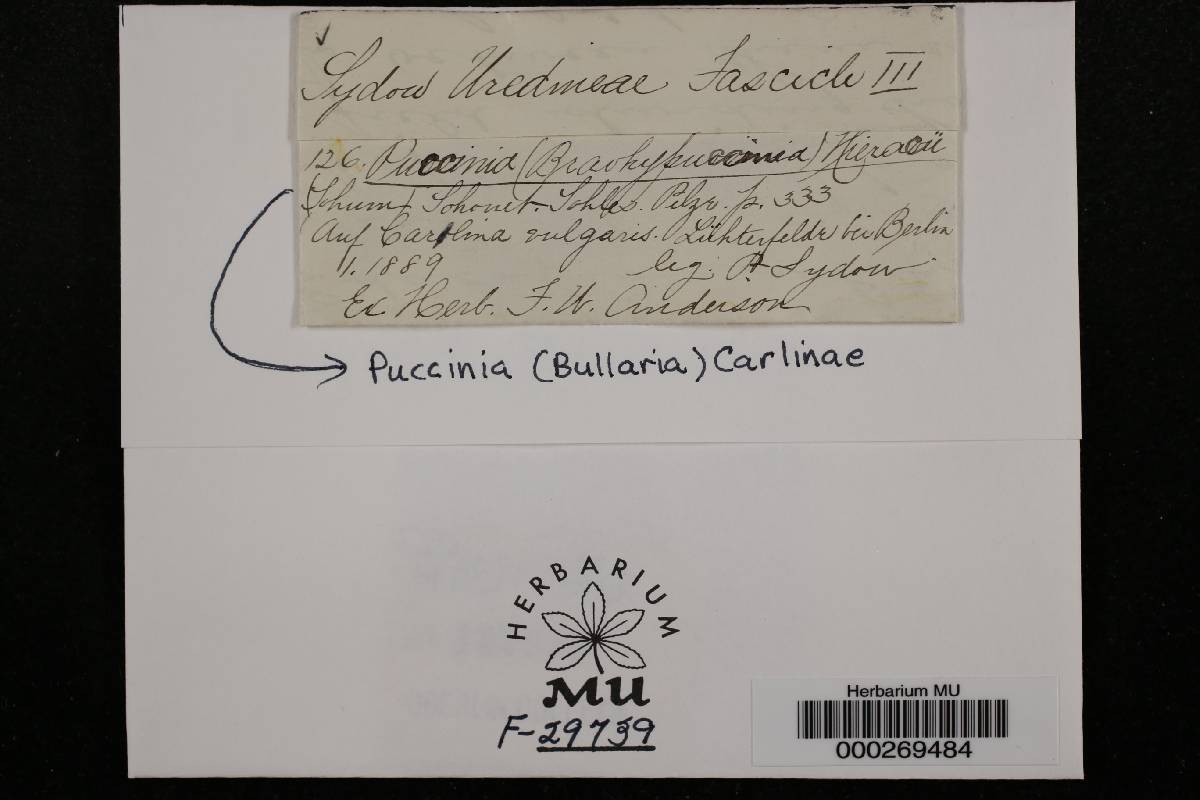 ✓
Sydow Uredineae Fascicle III
126. Puccinia (Brachypuccinia) Hieracii
(Schum) Schroet. Schles. Pilze. p. 333
Auf Carolina vulgaris. Lichterfelde bei Berlin
1. 1889 leg. P. Sydow
Ex Herb. F. W. Anderson
Puccinia (Bullaria) Carlinae
HERBARIUM
MU
F-29739
Herbarium MU
000269484